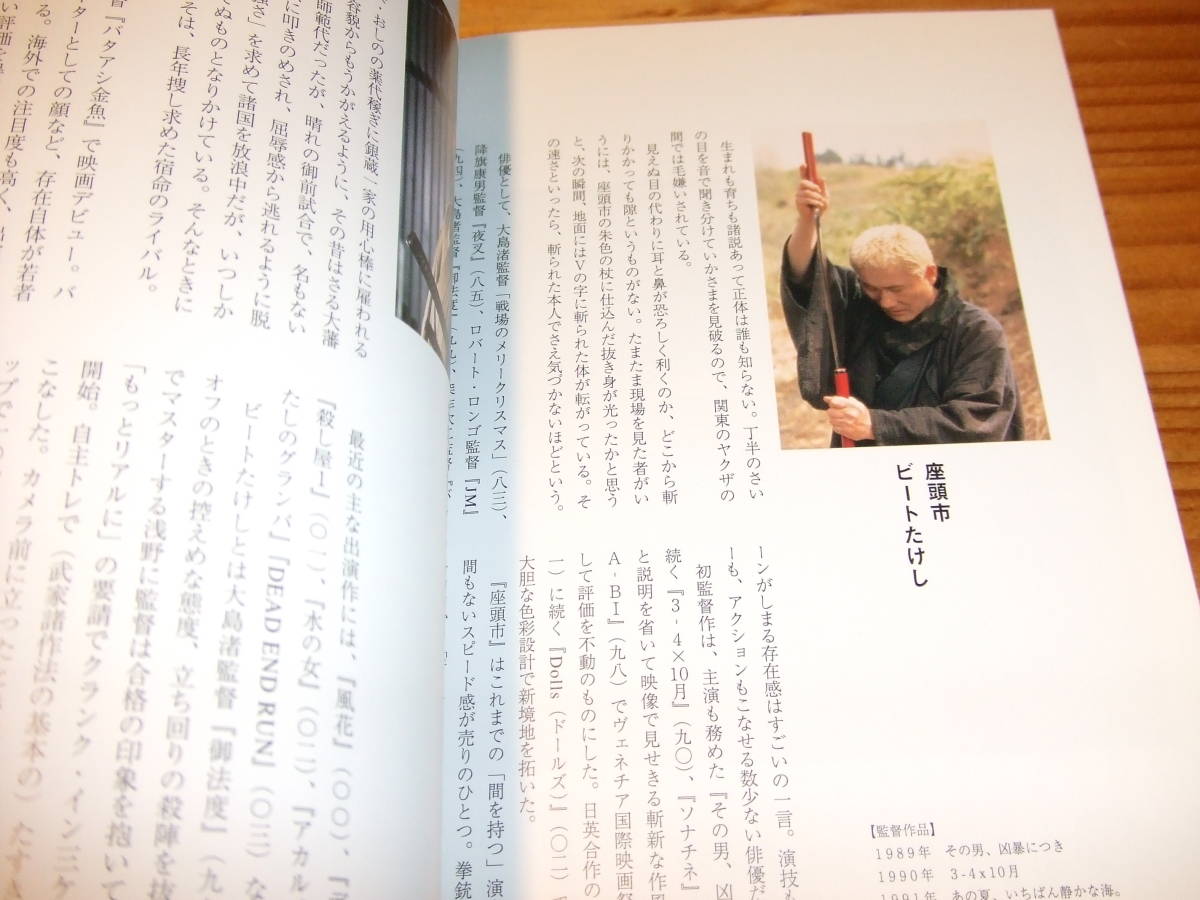 座頭市
ビートたけし
生まれも育ちも諸説あって正体は誰も知らない。丁半のさい
の目を音で聞き分けていかさまを見破るので、関東のヤクザの
間では毛嫌いされている。
見えぬ目の代わりに耳と鼻が恐ろしく利くのか、どこから斬
りかかっても隙というものがない。たまたま現場を見た者がい
うには、座頭市の朱色の杖に仕込んだ抜き身が光ったかと思う
と、次の瞬間、地面にはVの字に斬られた体が転がっている。そ
の速さといったら、斬られた本人でさえ気づかないほどという。
俳優として、大島渚監督『戦場のメリークリスマス』（八三）、
降旗康男監督『夜叉』（八五）、ロバート・ロンゴ監督『JM』
（九四）、大島渚監督『御法度』（九九）、
ーンがしまる存在感はすごいの一言。演技も
ーも、アクションもこなせる数少ない俳優だ
初監督作は、主演も務めた『その男、凶
続く『3-4×10月』（九〇）、『ソナチネ』
と説明を省いて映像で見せきる斬新な作風
A-BI』（九八）でヴェネチア国際映画祭
して評価を不動のものにした。日英合作の
一）に続く『Dolls（ドールズ）』（〇二）で
大胆な色彩設計で新境地を拓いた。
『座頭市』はこれまでの「間を持つ」演
間もないスピード感が売りのひとつ。拳銃
【監督作品】
1989年　その男、凶暴につき
1990年　3-4x10月
1991年　あの夏、いちばん静かな海。
・おしのの薬代稼ぎに銀蔵一家の用心棒に雇われる
容貌からもうかがえるように、その昔はさる大藩
師範代だったが、晴れの御前試合で、名もない
に叩きのめされ、屈辱感から逃れるように脱
強さ」を求めて諸国を放浪中だが、いつしか
てぬものとなりかけている。そんなときに
そは、長年捜し求めた宿命のライバル。
督『バタアシ金魚』で映画デビュー。バ
イターとしての顔など、存在自体が若者
る。海外での注目度も高く、出
最近の主な出演作には、『風花』（〇〇）、
『殺し屋1』（〇一）、『水の女』（〇二）、『アカル
たしのグランパ』『DEAD END RUN』（〇三）な
ビートたけしとは大島渚監督『御法度』（九
オフのときの控えめな態度、立ち回りの殺陣を抜
でマスターする浅野に監督は合格の印象を抱いて
「もっとリアルに」の要請でクランク・イン三ケ
開始。自主トレで（武家諸作法の基本の）
こなした。カメラ前に立った